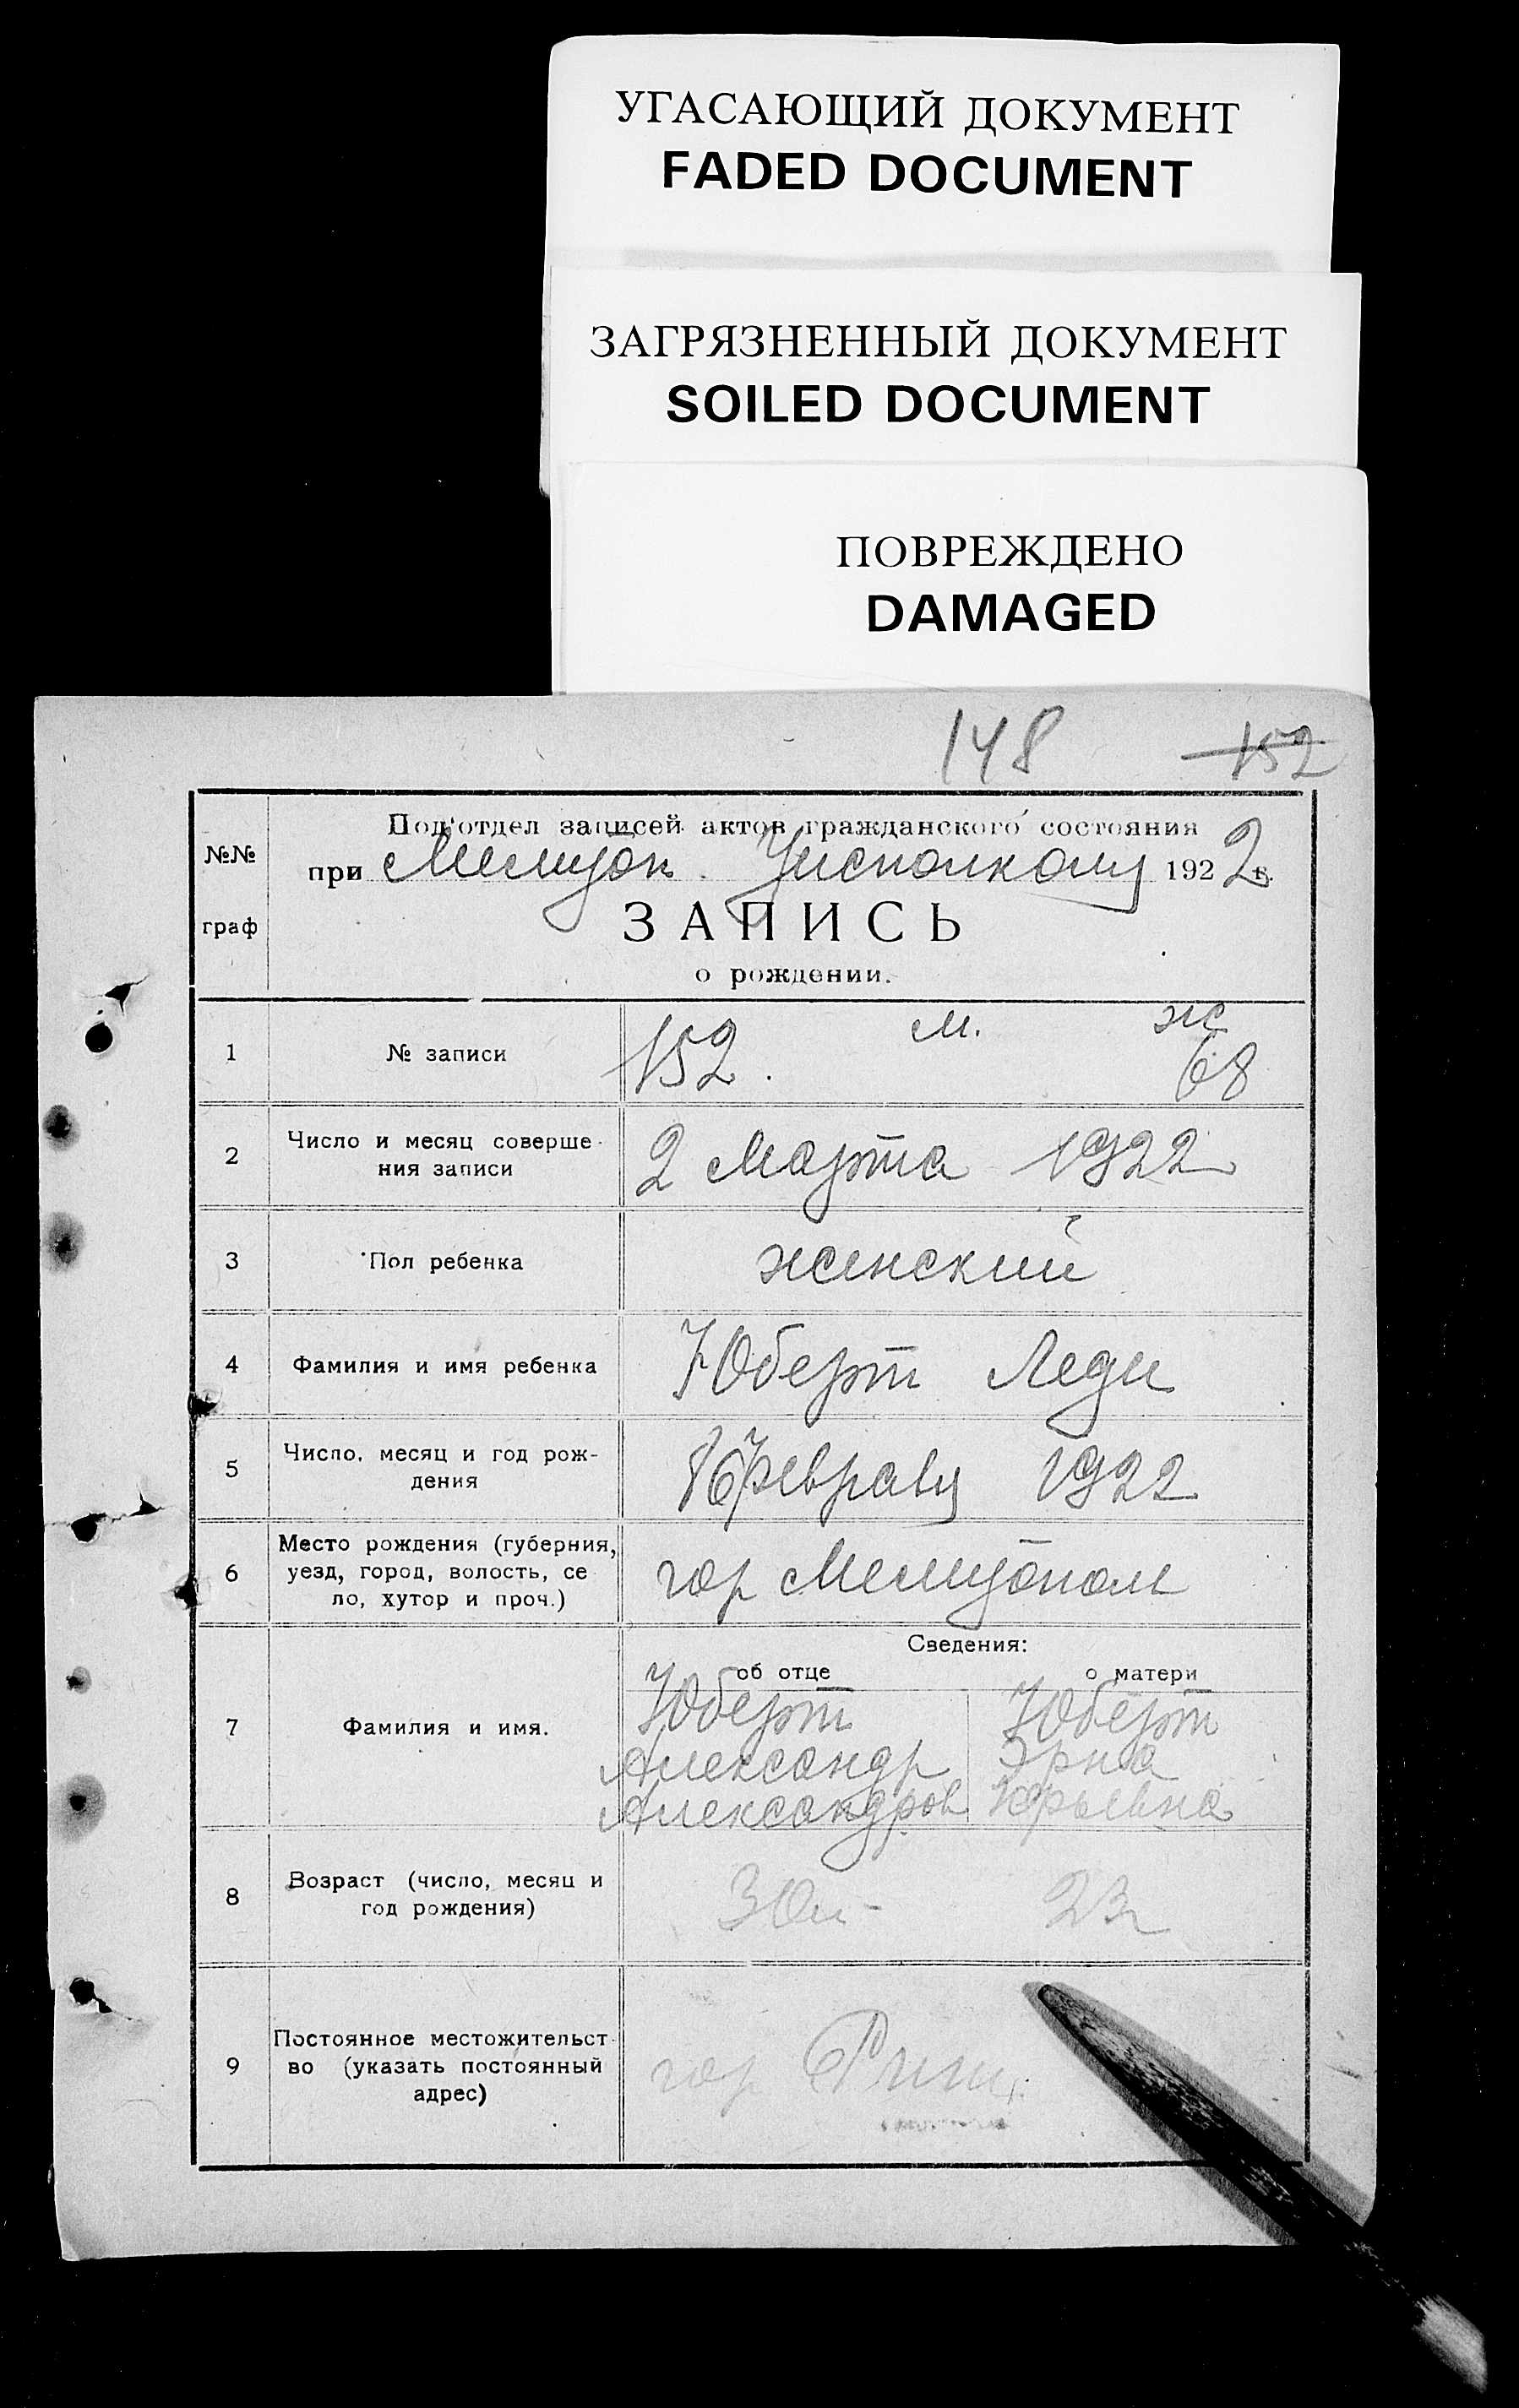 УГАСАЮЩИЙ ДОКУМЕНТ
FADED DOCUMENT
ЗАГРЯЗНЕННЫЙ ДОКУМЕНТ
SOILED DOCUMENT
ПОВРЕЖДЕНО
DAMAGED
148 152
№№
граф
Под'отдел записей актов гражданского состояния
при Мелитоп. Уисполкому 1922 г.
ЗАПИСЬ
о рождении.
1 № записи 152. м. ж 68
2 Число и месяц соверше-
ния записи
2 марта 1922
3 Пол ребенка женский
4 Фамилия и имя ребенка Юберт Леди
5 Число, месяц и год рож-
дения
Февраля 1922
6 Место рождения (губерния,
уезд, город, волость, се
ло, хутор и проч.)
гор Мелитопол
Сведения:
об отце о матери
7 Фамилия и имя.
Юберт Юберт
Александр Эрна
Александров Юрьевна
8 Возраст (число, месяц и
год рождения)
30л- 23г
9 Постоянное местожительст-
во (указать постоянный
адрес)
гор